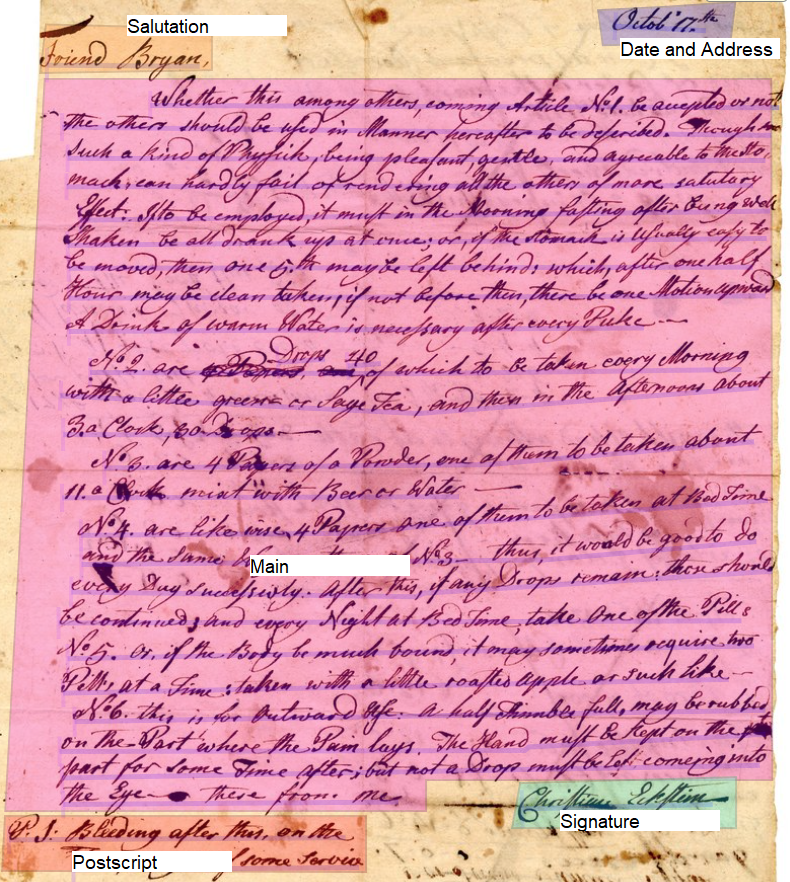 Salutation
Octobr 17.th
Date and Address
Friend Bryan,
Whether this among others, coming Article No 1. be accepted or not
the others should be used in Manner hereafter to be described. Though
such a kind of Physick, being pleasant, gentle, and agreable to the Sto,
mach, can hardly fail of rendering all the others of more salutary
Effect. If to be employed, it must in the Morning fasting after being well
Shaken be all drank up at once; or, if the stomach is usually easy to
be moved, then one 5.th may be left behind: which, after one half
Hour may be clean taken, if not before then, there be one Motion upward
A Drink of warm Water is necessary after every Puke —
No 2. are Drops 40 of which to be taken every Morning
with a little green or Sage Tea, and then in the afternoons about
3. a Clock, 30 Drops —
No 3. are 4 Papers of a Powder, one of them to be taken about
11. a Clock mixt with Beer or Water —
No 4. are like wise 4 Papers one of them to be taken at Bed Time
and the same No 3 — thus, it would be good to do
Main
every Day successively. After this, if any Drops remain: those should
be continued; and every Night at Bed Time, take One of the Pills
No 5. or, if the Body be much bound, it may sometimes require two
Pills, at a Time: taken with a little roasted apple or such like —
No 6. this is for outward Use: a half thimble full, may be rubbed
on the Part where the Pain lays. The Hand must be kept on the
part for some Time after; but not a Drop must be left comeing into
the Eye — these from me.
Christian Eckstein
Signature
P. S: Bleeding after this, on the
of some service
Postscript